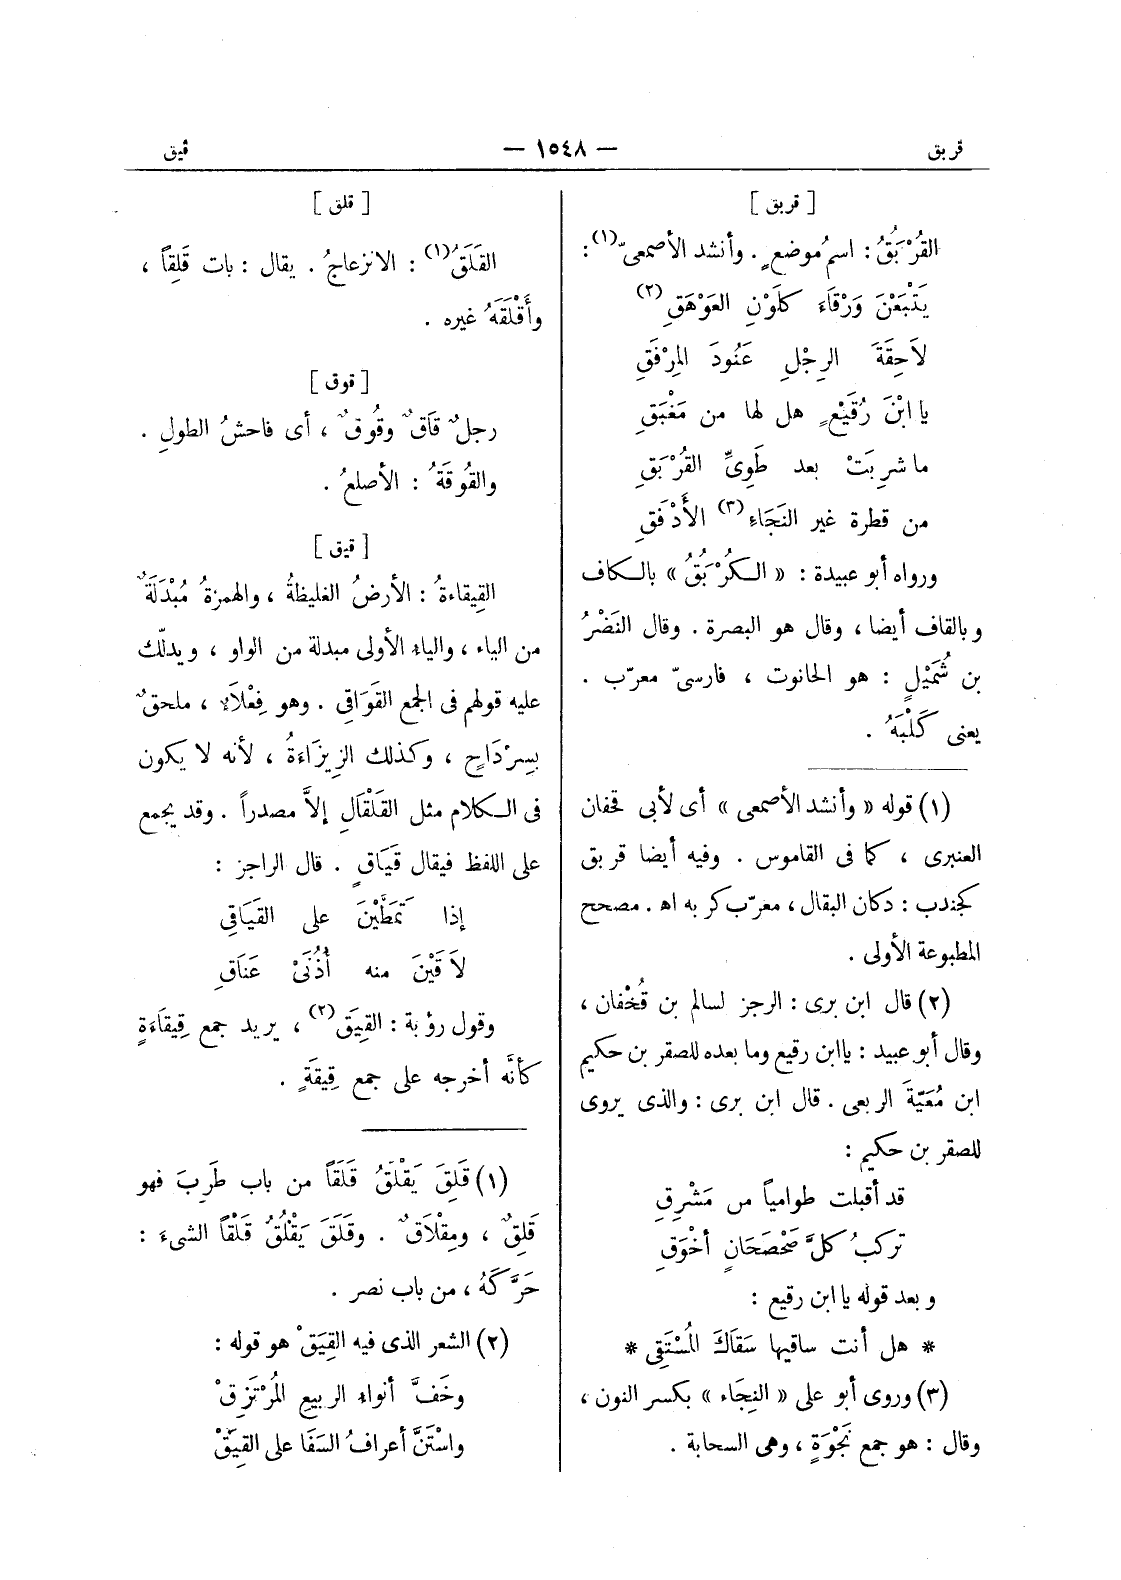 قربق
— ١٥٤٨ —
قيق
[ قربق ]
القُرْبَقُ : اسمُ موضعٍ . وأنشد الأصمعىّ(١) :
يَتْبَعْنَ وَرْقَاءَ كلَوْنِ العَوْهَقِ(٢)
لاَحِقَةَ الرِجْلِ عَنُودَ المِرْفَقِ
يا ابْنَ رُقَيْعٍ هل لها من مَغْبَقِ
ما شرِبَتْ بعد طَوِىِّ القُرْبَقِ
من قطرة غير النَجَاءِ(٣) الأَدْفَقِ
ورواه أبو عبيدة : « الكُرْبَقُ » بالكاف
وبالقاف أيضا ، وقال هو البصرة . وقال النَضْرُ
بن شُمَيْلٍ : هو الحانوت ، فارسىّ معرّب .
يعنى كَلْبَهُ .
(١) قوله « وأنشد الأصمعى » أى لأبى قحفان
العنبرى ، كما فى القاموس . وفيه أيضا قربق
كجندب : دكان البقال ، معرّب كربه اه . مصحح
المطبوعة الأولى .
(٢) قال ابن برى : الرجز لسالم بن قُحْفان ،
وقال أبو عبيد : يا ابن رقيع وما بعده للصقر بن حكيم
ابن مُعَيّةَ الربعى . قال ابن برى : والذى يروى
للصقر بن حكيم :
قد أقبلت طوامياً من مَشْرِقِ
تركبُ كلَّ صَحْصَحَانٍ أخْوَقِ
وبعد قوله يا ابن رقيع :
* هل أنت ساقيها سَقَاكَ المُسْتَقِى *
(٣) وروى أبو على « النِجَاء » بكسر النون ،
وقال : هو جمع نَجْوَةٍ ، وهى السحابة .
[ قلق ]
القَلَقُ(١) : الانزعاجُ . يقال : بات قَلِقاً ،
وأَقْلَقَهُ غيره .
[ قوق ]
رجلٌ قَاقٌ وقُوقٌ ، أى فاحشُ الطولِ .
والقُوقَةُ : الأصلعُ .
[ قيق ]
القِيقاءةُ : الأرضُ الغليظةُ ، والهمزةُ مُبْدَلَةٌ
من الياء ، والياء الأولى مبدلة من الواو ، ويدلّك
عليه قولهم فى الجمع القَوَاقِى . وهو فِعْلاَءٌ ، ملحقٌ
بسِرْدَاحٍ ، وكذلك الزِيزَاءَةُ ، لأنه لا يكون
فى الكلام مثل القَلْقَالِ إلاَّ مصدراً . وقد يجمع
على اللفظ فيقال قَيَاقٍ . قال الراجز :
إذا تَمَطَّيْنَ على القَيَاقِى
لاَقَيْنَ منه أُذُنَىْ عَنَاقِ
وقول رؤبة : القِيَق(٢) ، يريد جمع قِيقَاءَةٍ
كأنَّه أخرجه على جمع قِيقَةٍ .
(١) قَلِقَ يَقْلَقُ قَلَقاً من باب طَرِبَ فهو
قَلِقٌ ، ومِقْلاَقٌ . وقَلَقَ يَقْلُقُ قَلْقاً الشىءَ :
حَرَّكَهُ ، من باب نصر .
(٢) الشعر الذى فيه القِيَقْ هو قوله :
وخَفَّ أنواء الربيعِ المُرْتَزِقْ
واسْتَنَّ أعرافُ السَفَا على القِيَقْ